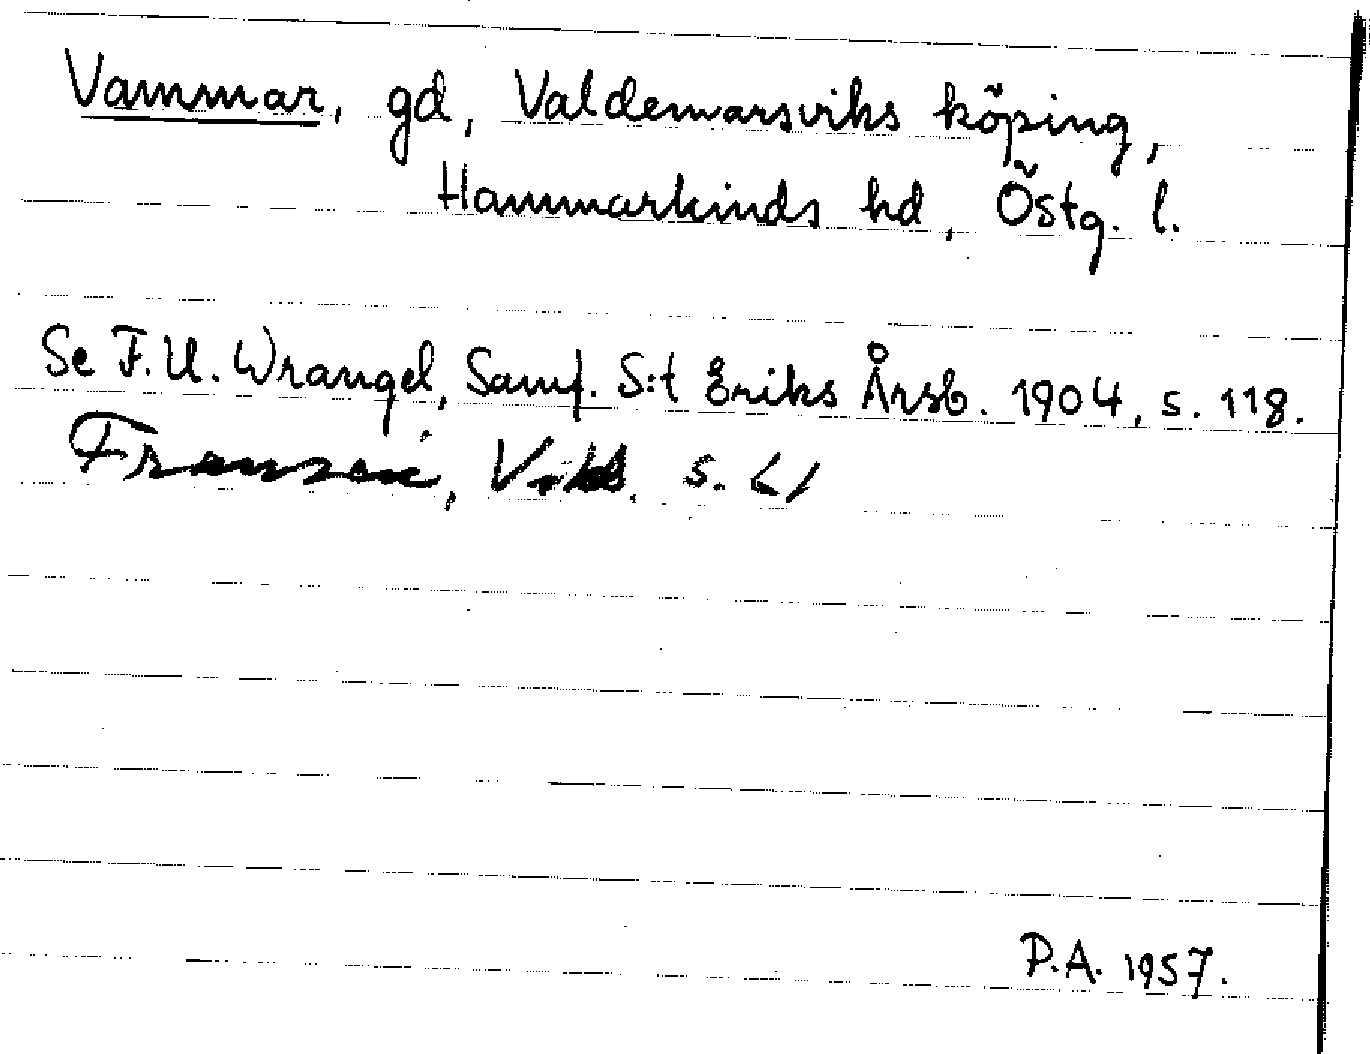 Vammar, gd, Valdemarsviks köping,
Hammarkinds hd, Östg. l.
Se F. U. Wrangel, Samf. S:t Eriks Årsb. 1904, s. 118.
s.
P.A. 1957.